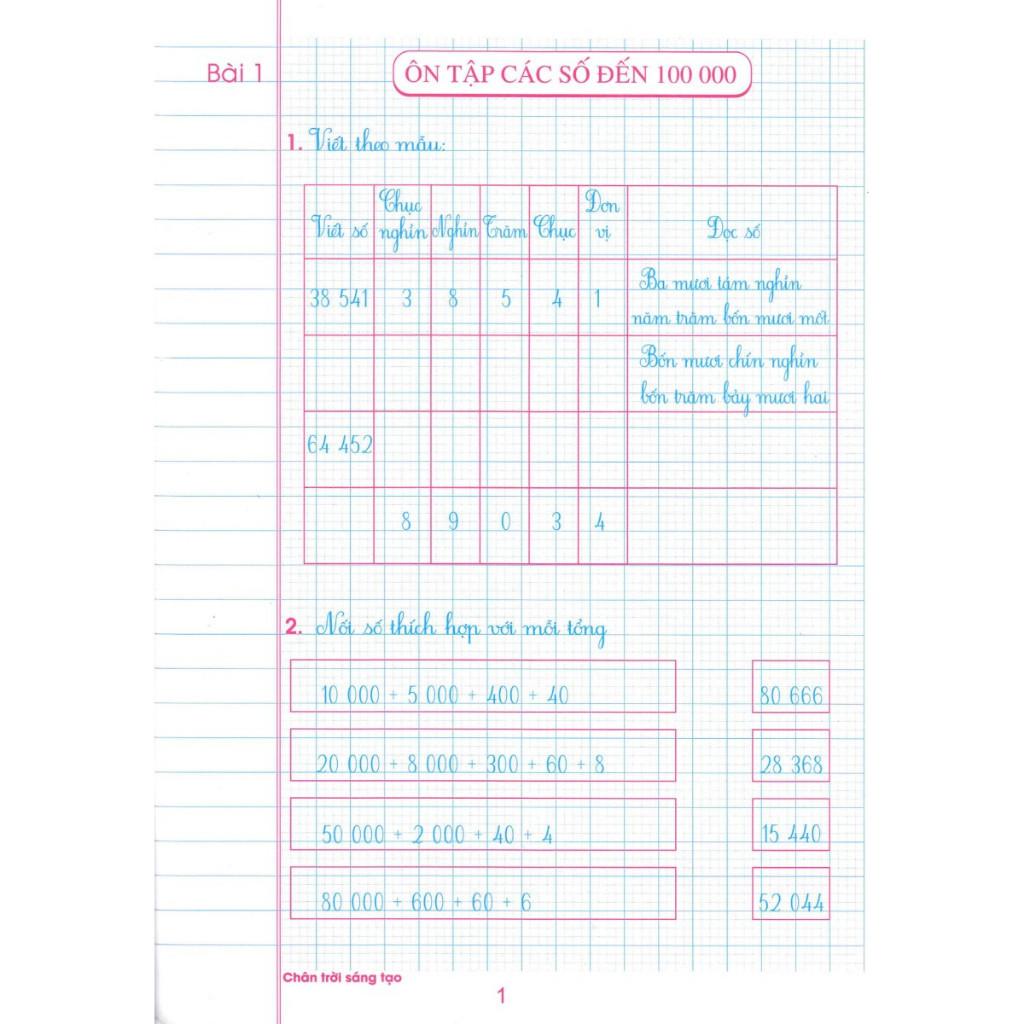 Bài 1
ÔN TẬP CÁC SỐ ĐẾN 100 000
1. Viết theo mẫu:
Viết số Chục nghìn Nghìn Trăm Chục Đơn vị Đọc số
38 541 3 8 5 4 1 Ba mươi tám nghìn
năm trăm bốn mươi mốt
Bốn mươi chín nghìn
bốn trăm bảy mươi hai
64 452
8 9 0 3 4
2. Nối số thích hợp với mỗi tổng
10 000 + 5 000 + 400 + 40 80 666
20 000 + 8 000 + 300 + 60 + 8 28 368
50 000 + 2 000 + 40 + 4 15 440
80 000 + 600 + 60 + 6 52 044
Chân trời sáng tạo
1